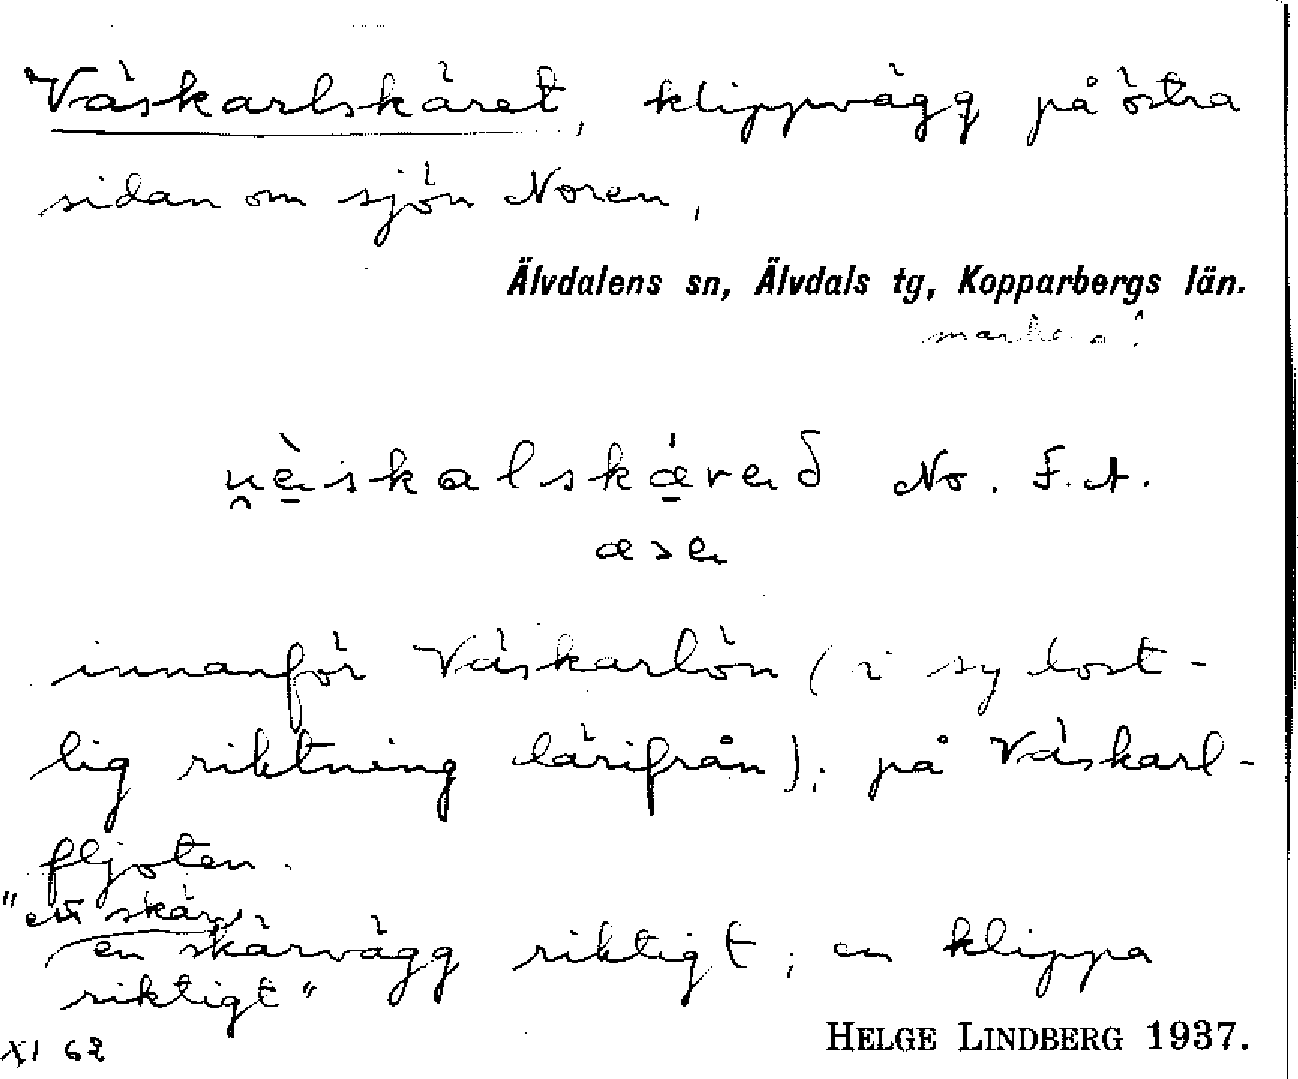 Väskarlskäret, klippvägg på östra
sidan om sjön Noren,
Älvdalens sn, Älvdals tg, Kopparbergs län.
No. F.A.
innanför Väskarlön (i sydost-
lig riktning därifrån); på Väskarl-
fljoten.
"ett skär,
en skärvägg riktigt; en klippa
riktigt"
XI 62
HELGE LINDBERG 1937.